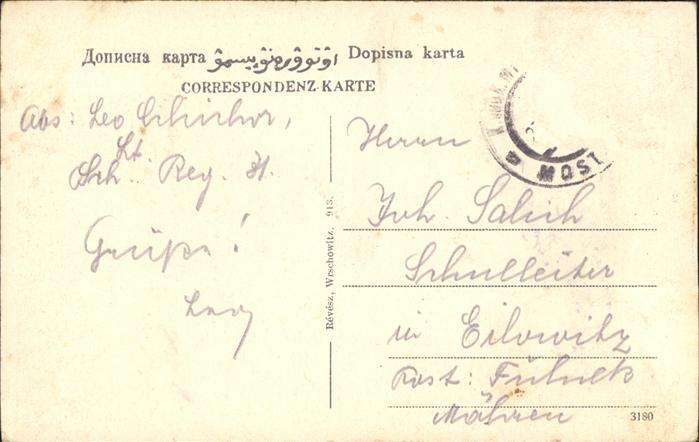 Дописна карта اۋتوۋرەنۋپیسمۋ Dopisna karta
CORRESPONDENZ-KARTE
MOST
Abs: Leo
Lt.
Reg. 31.
Grüße!
Leo
Révész, Wrschowitz. 913.
Herrn
Joh. Salich
Schulleiter
in Eilowitz
Post: Fulnek
Mähren
3180